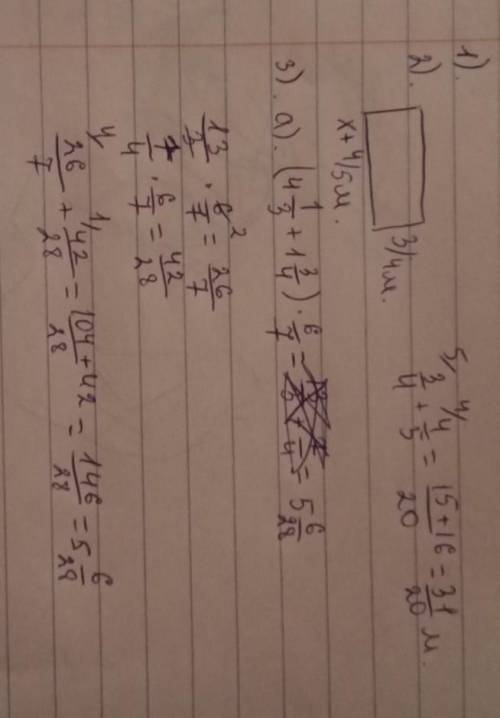 1).
2). 3/4 м. 5/ 3/4 + 4/ 4/5 = (15+16)/20 = 31/20 м.
x+4/5 м.
3). а). (4 1/3 + 1 3/4) · 6/7 = 5 6/28
13/3 · 6/7 2 = 26/7
7/4 · 6/7 = 42/28
4/ 26/7 + 1/ 42/28 = (104+42)/28 = 146/28 = 5 6/28